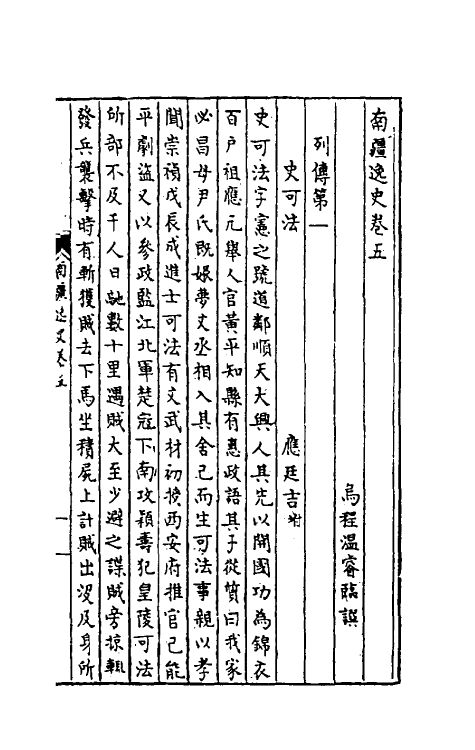 南疆逸史卷五
烏程溫睿臨譔
列傳第一
史可法　應廷吉附
史可法字憲之號道鄰順天大興人其先以開國功為錦衣
百戶祖應元舉人官黃平知縣有惠政語其子從質曰我家
必昌母尹氏既娠夢文丞相入其舍已而生可法事親以孝
聞崇禎戊辰成進士可法有文武材初授西安府推官已能
平劇盜又以參政監江北軍楚寇下南攻潁壽犯皇陵可法
所部不及千人日馳數十里遇賊大至少避之諜賊旁掠輒
發兵襲擊時有斬獲賊去下馬坐積屍上計賊出沒及身所
南疆逸史卷五
一